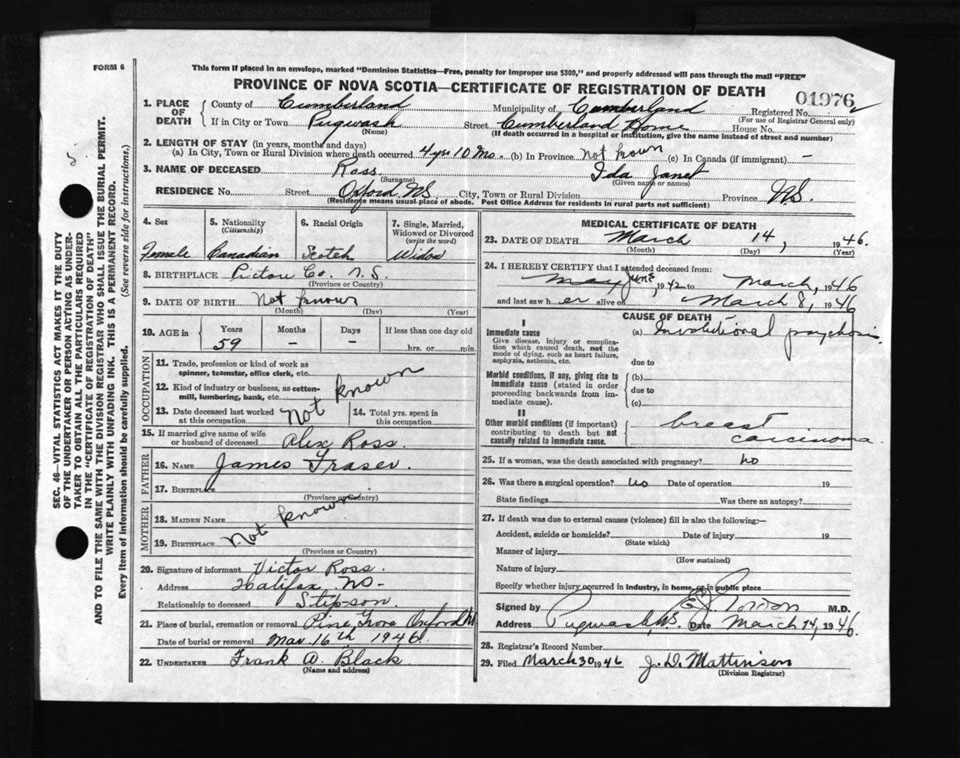 FORM 6
This form if placed in an envelope, marked "Dominion Statistics—Free, penalty for improper use $300," and properly addressed will pass through the mail "FREE"
PROVINCE OF NOVA SCOTIA—CERTIFICATE OF REGISTRATION OF DEATH
01976
1. PLACE OF DEATH { County of Cumberland Municipality of Cumberland Registered No.
(For use of Registrar General only)
If in City or Town Pugwash Street Cumberland Home House No.
(Name) (If death occurred in a hospital or institution, give the name instead of street and number)
2. LENGTH OF STAY (in years, months and days)
(a) In City, Town or Rural Division where death occurred 4 yrs 10 Mo. (b) In Province not known (c) In Canada (if immigrant) —
3. NAME OF DECEASED Ross. Ida Janet
(Surname) (Given name or names)
RESIDENCE No. Street Oxford NS City, Town or Rural Division Province NS.
(Residence means usual place of abode. Post Office Address for residents in rural parts not sufficient)
SEC. 46—VITAL STATISTICS ACT MAKES IT THE DUTY
OF THE UNDERTAKER OR PERSON ACTING AS UNDER-
TAKER TO OBTAIN ALL THE PARTICULARS REQUIRED
IN THE "CERTIFICATE OF REGISTRATION OF DEATH"
AND TO FILE THE SAME WITH THE DIVISION REGISTRAR WHO SHALL ISSUE THE BURIAL PERMIT.
WRITE PLAINLY WITH UNFADING INK. THIS IS A PERMANENT RECORD.
Every item of information should be carefully supplied. (See reverse side for instructions.)
4. Sex 5. Nationality (Citizenship) 6. Racial Origin 7. Single, Married, Widowed or Divorced (write the word)
Female Canadian Scotch Widow
8. BIRTHPLACE Pictou Co. N.S.
(Province or Country)
9. DATE OF BIRTH Not known
(Month) (Day) (Year)
10. AGE in Years Months Days If less than one day old
59 — — hrs. or min.
OCCUPATION
11. Trade, profession or kind of work as
spinner, teamster, office clerk, etc.
12. Kind of industry or business, as cotton-
mill, lumbering, bank, etc.
Not known
13. Date deceased last worked at this occupation 14. Total yrs. spent in this occupation
15. If married give name of wife
or husband of deceased Alex Ross.
FATHER
16. NAME James Fraser.
17. BIRTHPLACE
(Province or Country)
MOTHER
18. MAIDEN NAME
Not known
19. BIRTHPLACE
(Province or Country)
20. Signature of informant Victor Ross.
Address Halifax, NS-
Relationship to deceased Step-son.
21. Place of burial, cremation or removal Pine Grove Oxford NS
Date of burial or removal Mar 16th 1946
22. UNDERTAKER Frank A. Black
(Name and address)
MEDICAL CERTIFICATE OF DEATH
23. DATE OF DEATH March 14, 1946.
(Month) (Day) (Year)
24. I HEREBY CERTIFY that I attended deceased from:
May June, 1942 to March, 1946
and last saw her alive on March 8, 1946
CAUSE OF DEATH
I
Immediate cause (a) Involutional psychosis
Give disease, injury or complica-
tion which caused death, not the
mode of dying, such as heart failure,
asphyxia, asthenia, etc. due to
Morbid conditions, if any, giving rise to (b)
immediate cause (stated in order due to
proceeding backwards from im-
mediate cause). (c)
II
Other morbid conditions (if important)
contributing to death but not
causally related to immediate cause.
breast
carcinoma.
25. If a woman, was the death associated with pregnancy? no
26. Was there a surgical operation? no Date of operation 19
State findings Was there an autopsy?
27. If death was due to external causes (violence) fill in also the following:—
Accident, suicide or homicide? Date of injury 19
(State which)
Manner of injury
(How sustained)
Nature of injury
Specify whether injury occurred in industry, in home, or in public place
Signed by M.D.
Address Pugwash, NS. Date March 14, 1946.
28. Registrar's Record Number
29. Filed March 30 1946 J. D. Mattinson
(Division Registrar)